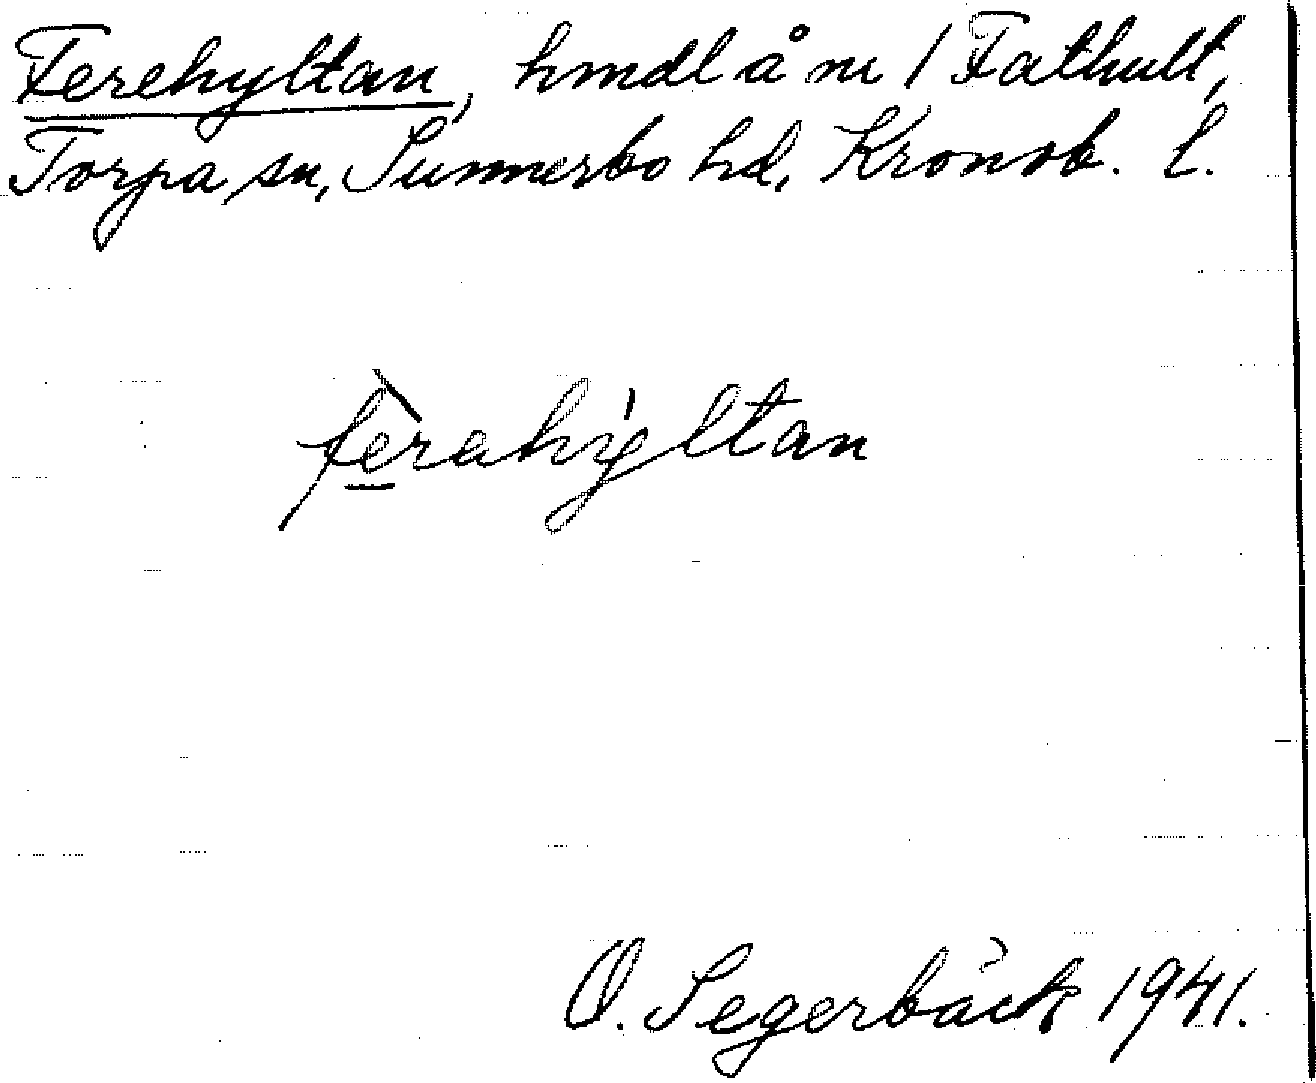 Ferehyltan, hmdl å nr 1 Fathult,
Torpa sn, Sunnerbo hd, Kronob. l.
fèrahýltan
O. Segerbäck 1941.